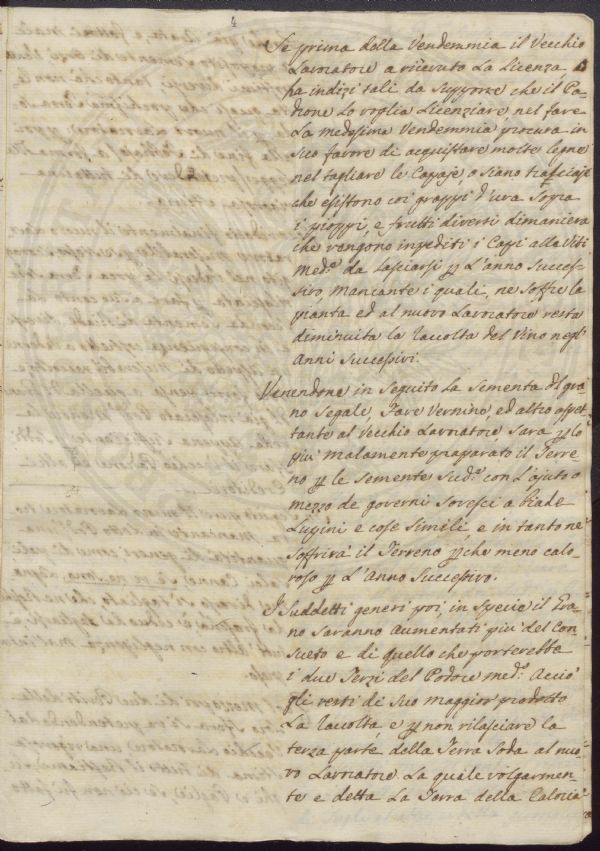 4
Se prima della Vendemmia il Vecchio
Lavoratore a ricevuto La Licenza, o
ha indizi tali da Supporre che il Pa-
drone Lo voglia Licenziare nel fare
La medesima Vendemmia procura in
Suo favore di acquistare molte legne
nel tagliare le Capaje, o siano
che esistono coi grappi d'uva Sopra
i pioppi, e frutti diversi dimaniera
che vengono inpediti i Cappi alla Viti
med.e da Lasciarsi p L'anno Succes-
sivo, mancante i quali, ne Soffre la
pianta ed al nuovo Lavoratore resta
diminuita la Raccolta del Vino negl'
Anni Successivi.
Venendone in Seguito La Sementa di gra
no Segale, Fave Vernino, ed altro aspet
tante al Vecchio Lavoratore, Sara p lo
piu malamente preparato il Terre
no p le Semente Sud.e con L'ajuto o
mezzo de governi Sovesci a Biade
Lupini e cose Simili, e in tanto ne
Soffrirà il Terreno p che meno calo-
roso p L'Anno Successivo.
I Suddetti generi poi, in Specie il Gra
no Saranno Aumentati piu del Con
Sueto e di quello che porterebbe
i due Terzi del Podere med.o Acciò
gli resti di Suo maggior prodotto
La Raccolta, e p non rilasciare la
terza parte della Terra Soda al nuo
vo Lavoratore La quale volgarmen-
te e detta La Terra della Caloria